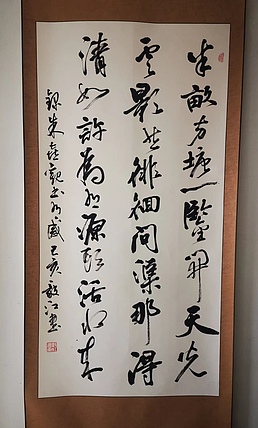 半畝方塘一鑒開天光
雲影共徘徊問渠那得
清如許為有源頭活水來
錄朱熹觀書有感己亥江書